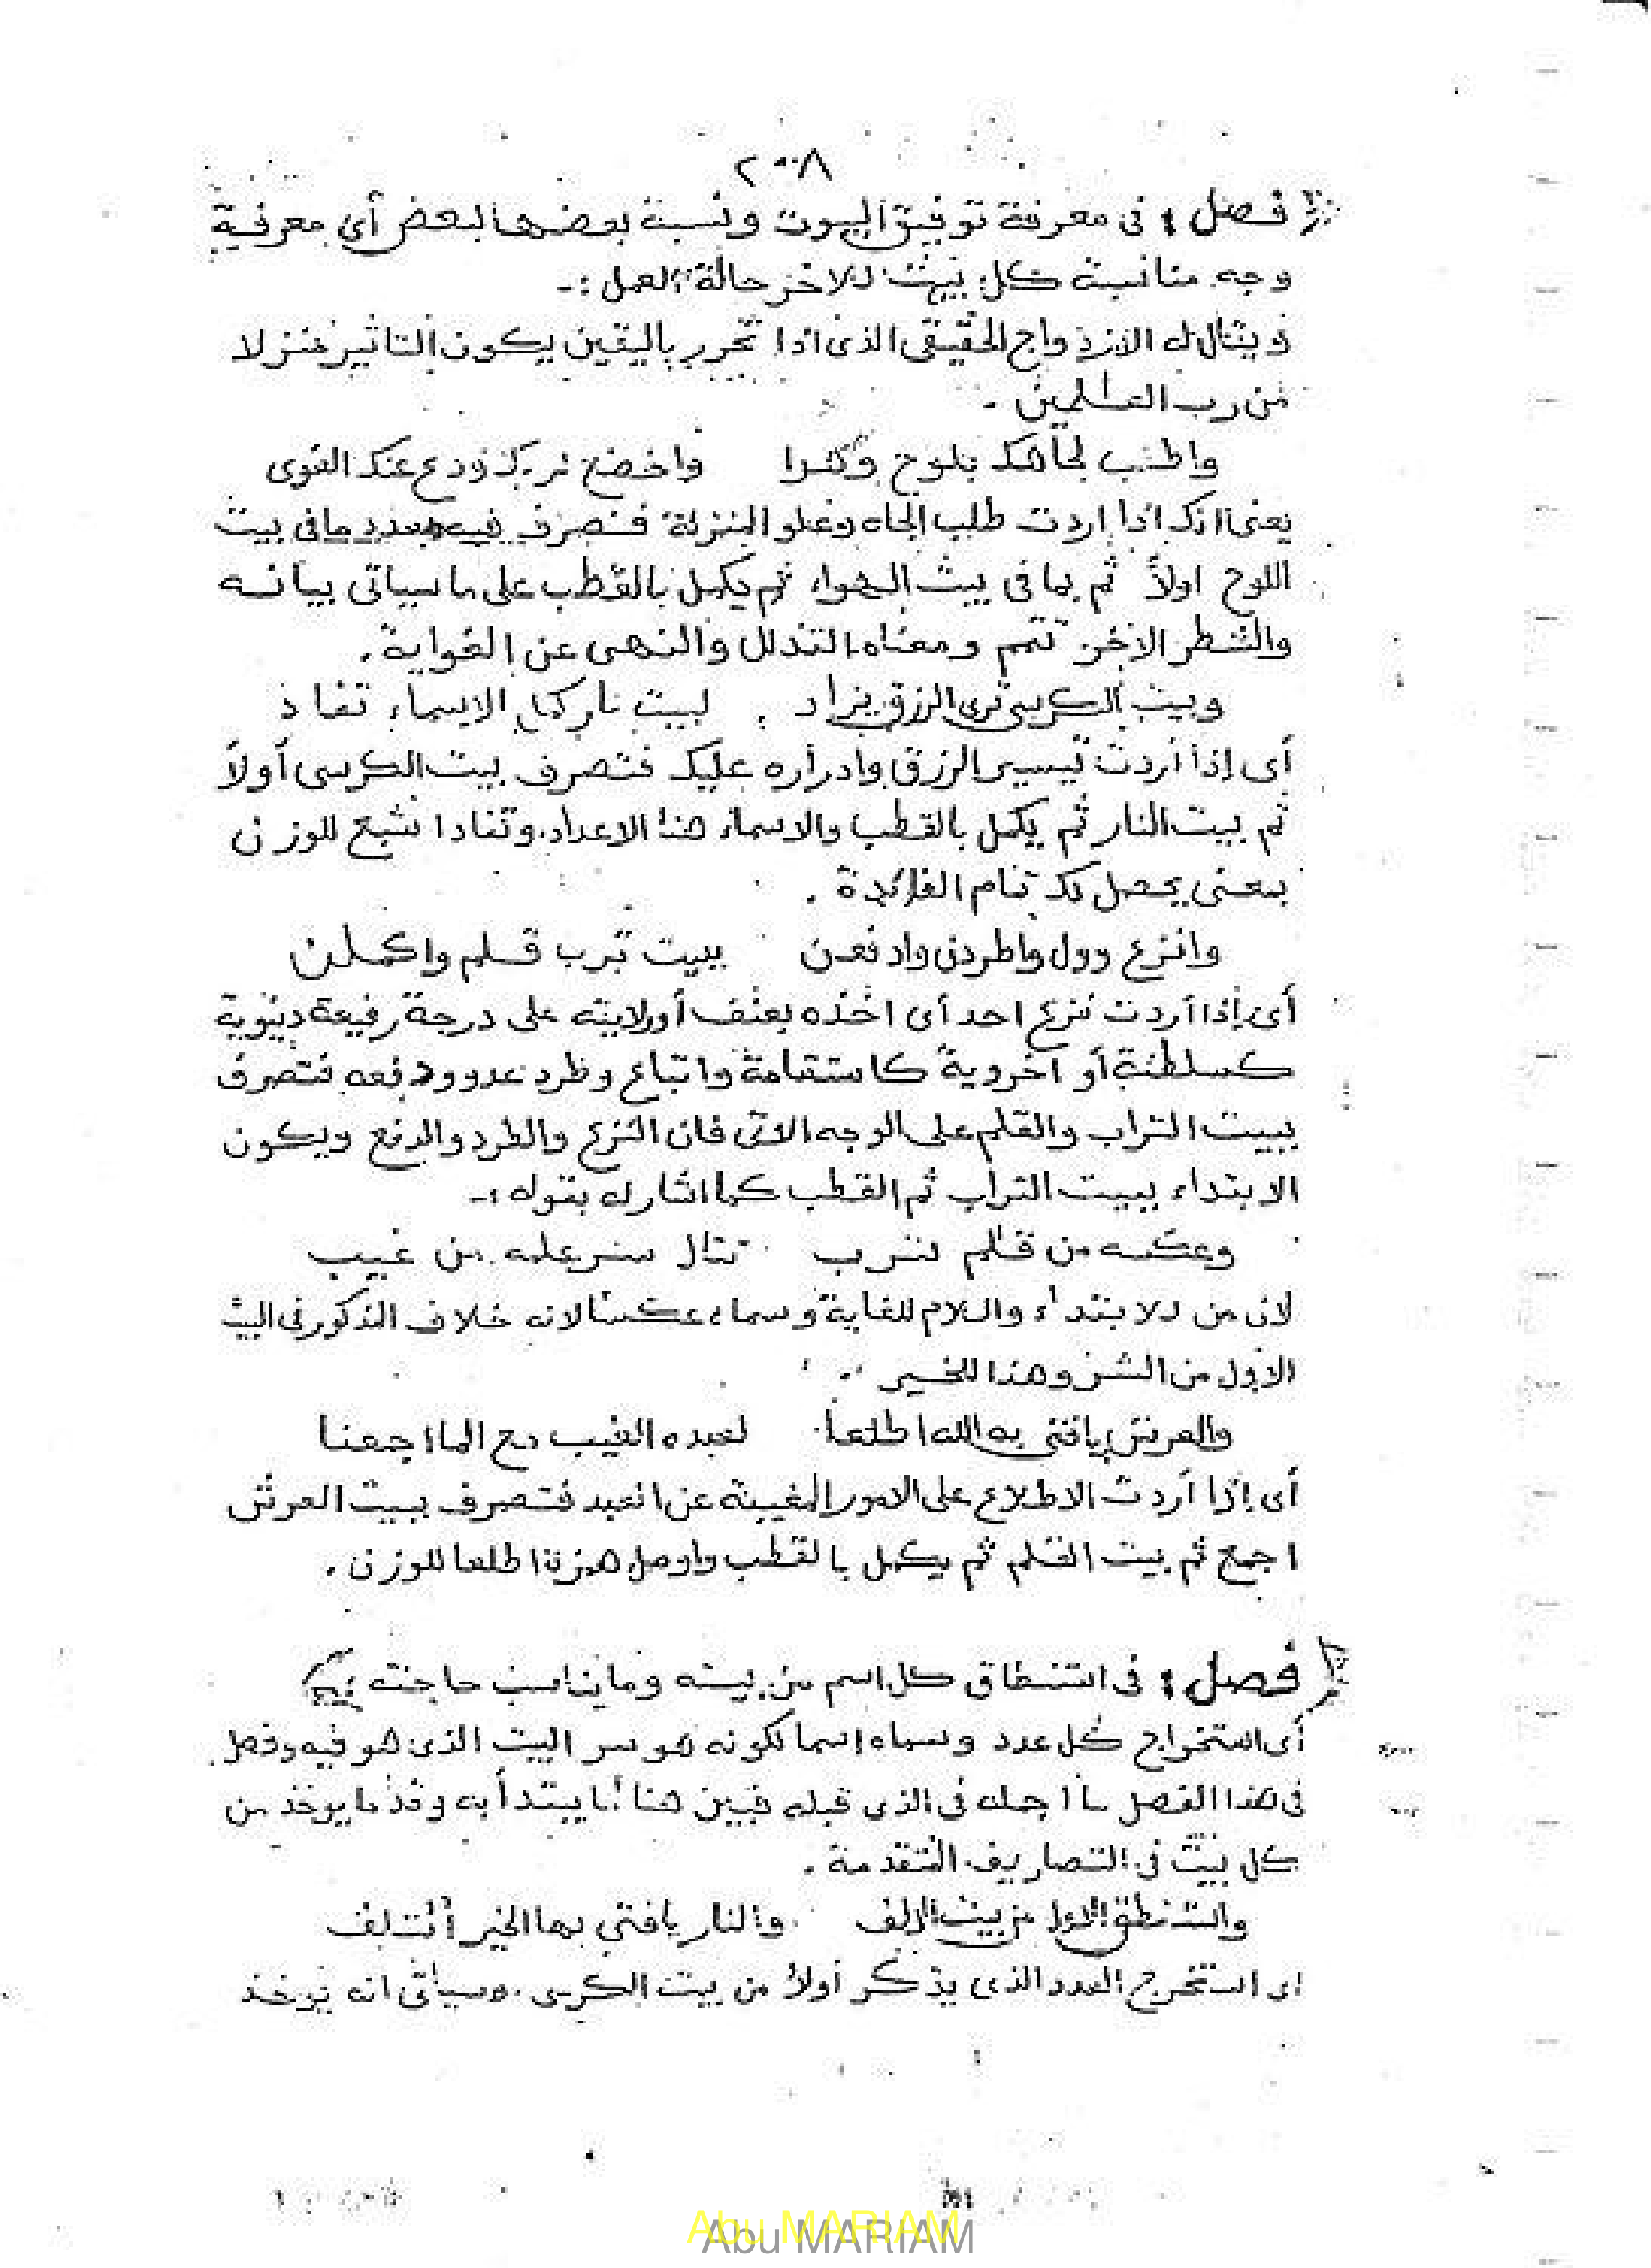 ٢٠٠٨
فصل : فى معرفة توفيق البيوت ونسبة بعضها لبعض أى معرفة
وجه مناسبة كل بيت للاخر حالة العمل :-
ويقال له الازدواج الحقيقى الذى اذا تحرر باليقين يكون التاثير منزلا
من رب العالمين .
واطلب لجاهك بلوح وكثرا واخضع لربك ودع عنك الغوى
يعنى انك اذا اردت طلب الجاه وعلو المنزلة فتصرف فيه بعدد ما فى بيت
اللوح اولاً ثم بما فى بيت الهواء ثم يكمل بالقطب على ما سياتى بيانه
والشطر الاخر تتمم ومعناه التذلل والنهى عن الغواية .
وبيت الكرسى ترى الرزق يزاد لبيت نار كمل الاسماء تفاد
أى إذا أردت تيسير الرزق وادراره عليك فتصرف بيت الكرسى أولاً
ثم بيت النار ثم يكمل بالقطب والاسماء هنا الاعداد وتفادا شبع للوزن
بمعنى يحصل لك تمام الفائدة .
وانزع وول واطردن وادفعن ببيت ترب قلم واكملن
أى إذا أردت نزع احد أى اخذه بعنف أو ولايته على درجة رفيعة دنيوية
كسلطنة أو اخروية كاستقامة واتباع وطرد عدو ودفعه فتصرف
ببيت التراب والقلم على الوجه الاتى فان النزع والطرد والدفع ويكون
الابتداء ببيت التراب ثم القطب كما اشار له بقوله :-
وعكسه من قلم لترب تنال سر علمه من غيب
لان من للابتداء واللام للغاية وسماه عكسا لانه خلاف المذكور فى البيت
الاول من الشر وهذا للخير
والعرش يافتى به الله اطلعا لعبده الغيب مع الما اجمعا
أى إذا أردت الاطلاع على الامور المغيبة عن العبد فتصرف ببيت العرش
اجمع ثم بيت القلم ثم يكمل بالقطب واوصل همزة اطلعا للوزن .
فصل : فى استنطاق كل اسم من بيته وما يناسب حاجته
أى استخراج كل عدد وسماه إسما لكونه هو سر البيت الذى هو فيه وفصل
فى هذا الفصل ما اجمله فى الذى قبله فبين هنا ما يبتدأ به وقدما يوخذ من
كل بيت فى التصاريف المتقدمة .
واستنطق الاول من بيت الالف والنار يافتى بها الخير أئتلف
اى استخرج العدد الذى يذكر أولا من بيت الكرسى وسياتى انه يوخذ
Abu MARIAM